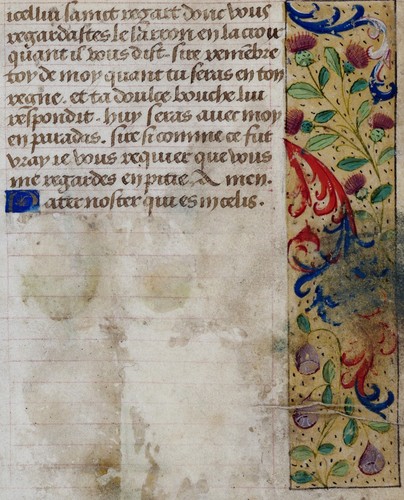 icellui sainct regart donc vous
regardastes le larron en la croix
quant il vous dist. sire remembre
toy de moy quant tu seras en ton
regne. et ta doulce bouche lui
respondit. huy seras avec moy
en paradas. sire si comme ce fut
vray ie vous requier que vous
me regardes en pitie. Amen.
Pater noster qui es in celis.